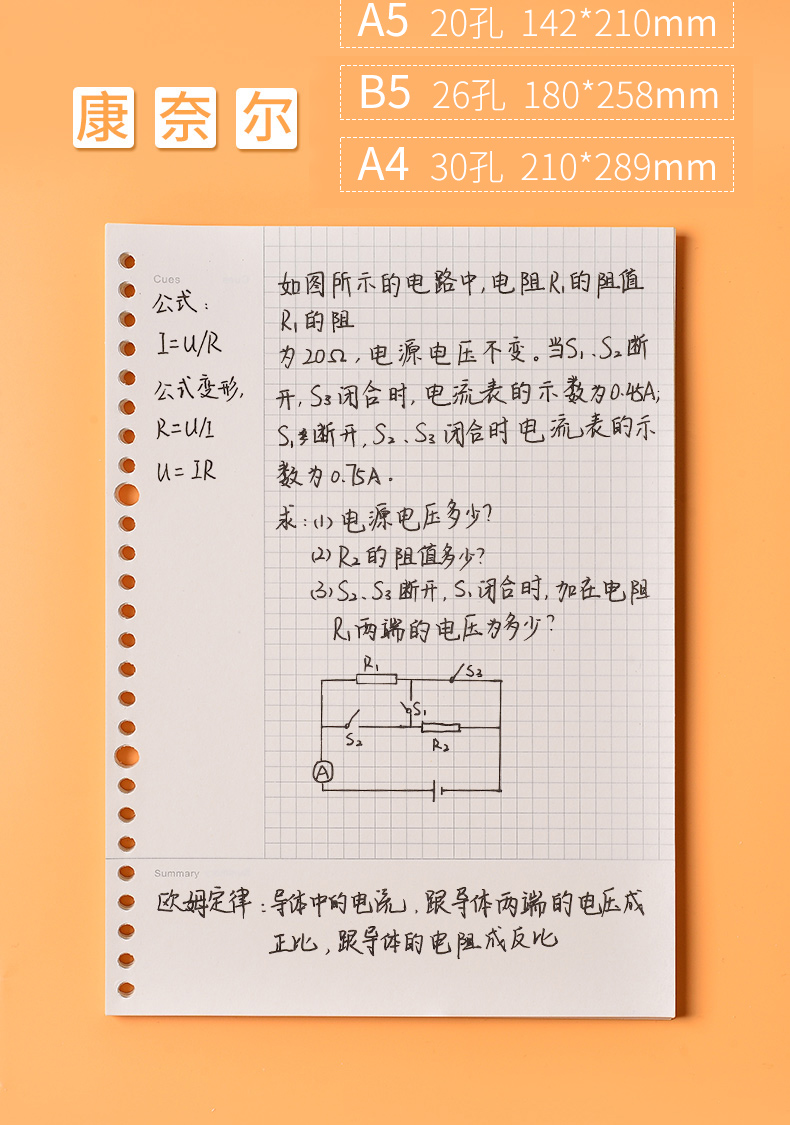 A5 20孔 142*210mm
B5 26孔 180*258mm
A4 30孔 210*289mm
康奈尔
Cues
公式:
I=U/R
公式变形,
R=U/I
U=IR
如图所示的电路中,电阻R₁的阻值
R₁的阻
为20Ω,电源电压不变。当S₁、S₂断
开,S₃闭合时,电流表的示数为0.45A;
S₁断开,S₂、S₃闭合时电流表的示
数为0.75A.
求:(1)电源电压多少?
(2)R₂的阻值多少?
(3)S₂、S₃断开,S₁闭合时,加在电阻
R₁两端的电压为多少?
R₁
S₃
S₁
S₂
R₂
A
Summary
欧姆定律:导体中的电流,跟导体两端的电压成
正比,跟导体的电阻成反比